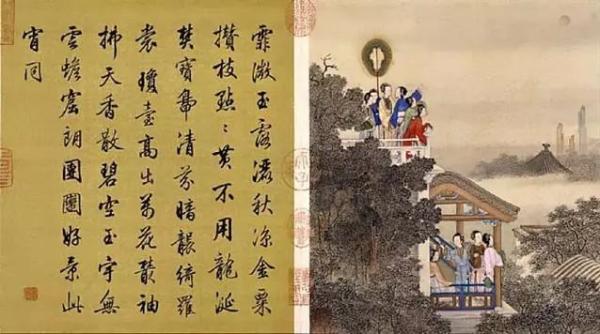 霏微玉露秋涼金粟
攢枝點點黃不用龍涎
焚寶鼎清芬暗襲綺羅
裳瓊臺高出萬花叢袖
拂天香散碧空玉宇無
雲蟾窟朗團圞好景此
宵同